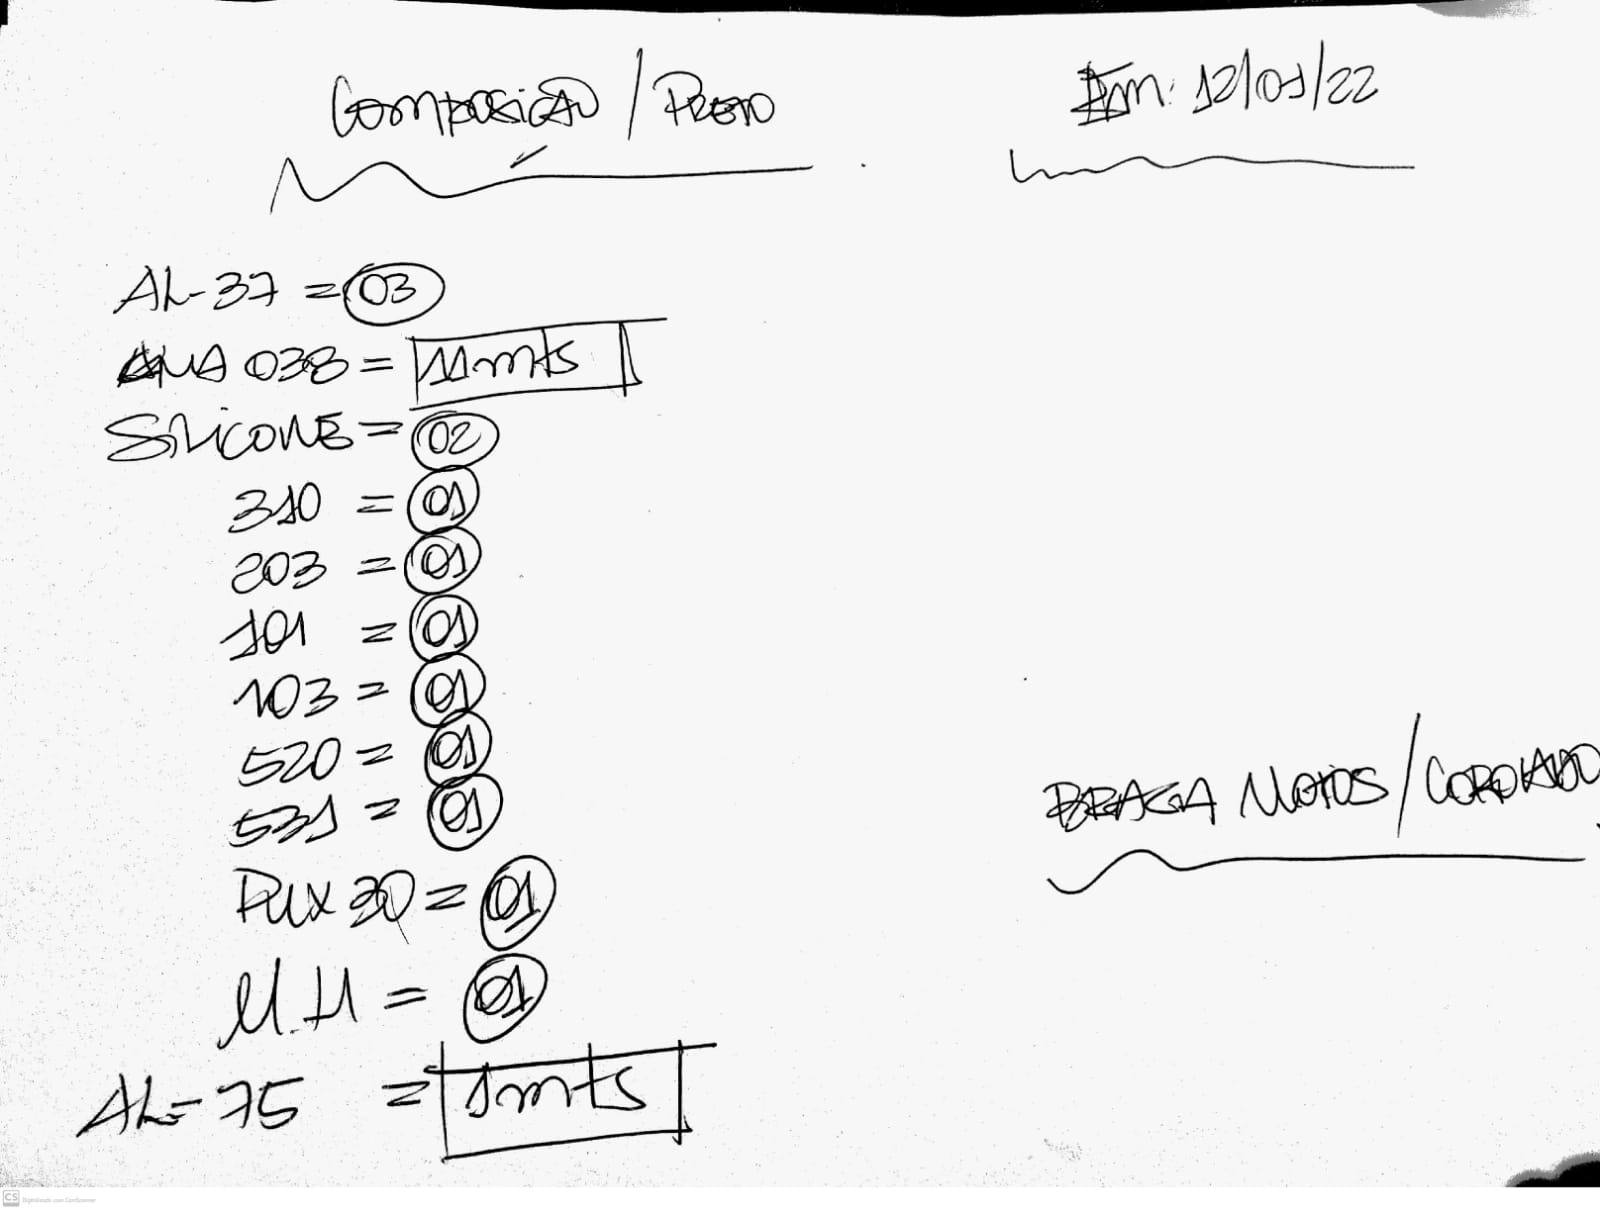 COMPOSIÇÃO / PRETO
Em: 12/01/22
AL-37 = 03
038 = 11mts
SILICONE = 02
310 = 01
203 = 01
101 = 01
103 = 01
520 = 01
531 = 01
PUX 30 = 01
M.H = 01
AL-75 = 1mts
BRAGA MOTOS / COROADO
CS Digitalizado com CamScanner